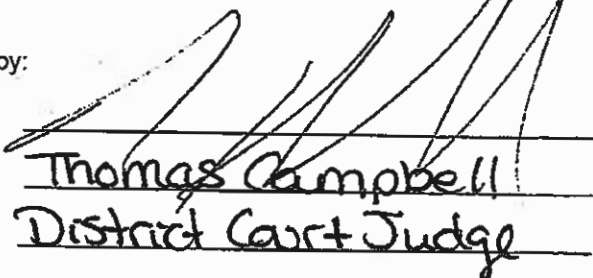 by:
Thomas Campbell
District Court Judge